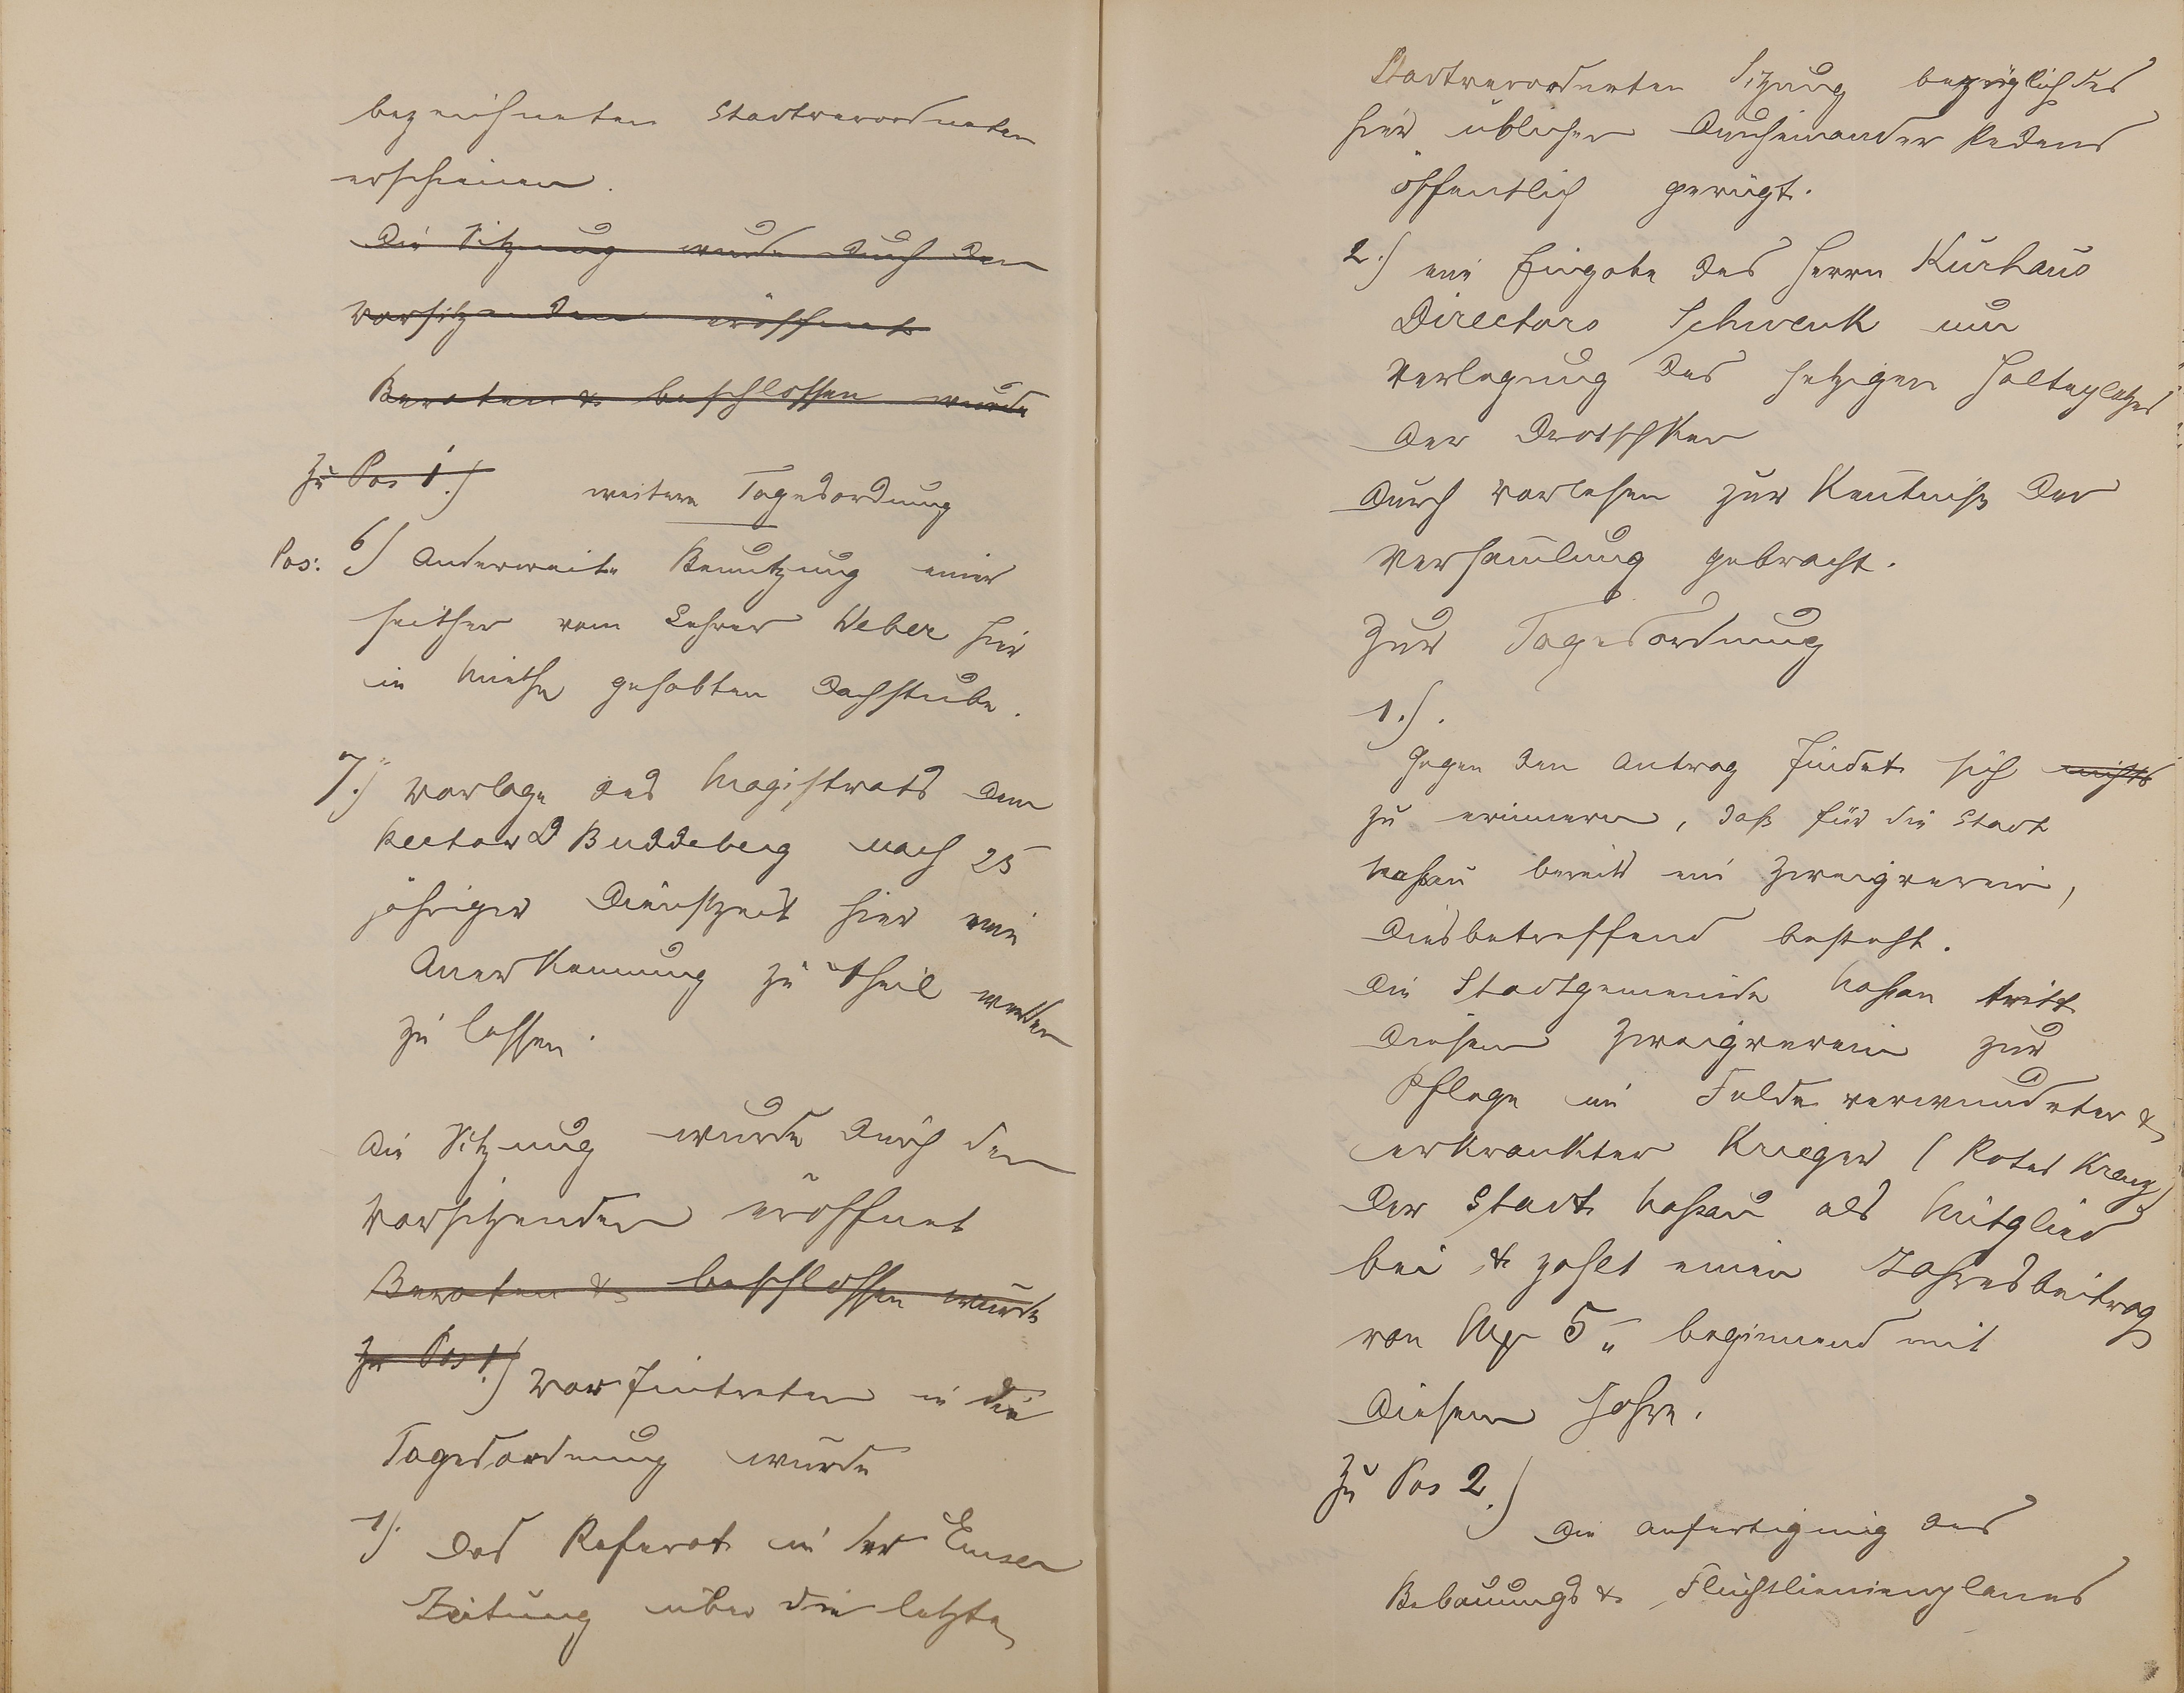 bezeichneten Stadtverordneten
erschienen.
Die Sitzung wurde durch den
Vorsitzenden eröffnet
Beraten & beschlossen wurde
Zu Pos 1.)
weitere Tagesordnung
Pos: 6) Anderweite Benutzung einer
seither vom Lehrer Weber hier
in Miethe gehabten Dachstube.
7.) Vorlage des Magistrats dem
Rector D Buddeberg nach 25
jähriger Dienstzeit hier eine
Anerkennung zu theil werden
zu lassen.
Die Sitzung wurde durch den
Vorsitzenden eröffnet
Beraten & beschlossen wurde
Zu Pos 1.) Vor Eintreten in die
Tagesordnung wurde
1). Das Referat in der Emser
Zeitung über die letzte
Stadtverordneten Sitzung bezüglich des
hier üblichen Durcheinander Redens
öffentlich gerügt.
2.) eine Eingabe des Herrn Kurhaus
Directors Schwenk um
Verlegung des jetzigen Halteplatzes
der Droschken
durch vorlesen zur Kentniß der
Versam̄lung gebracht.
Zur Tagesordnung
1.).
Gegen den Antrag findet sich nichts
zu erinnern, daß für die Stadt
Nassau bereits ein Zweigverein,
diesbetreffend besteht.
Die Stadtgemeinde Nassau tritt
diesem Zweigverein zur
Pflege im Felde verwundeter &
erkrankter Krieger (Rotes Kreuz)
der Stadt Nassau als Mitglied
bei & zahlt einen Jahresbeitrag
von Mk 5 „ beginnend mit
diesem Jahre.
Zu Pos 2.)
Die Anfertigung des
Bebauungs & Fluchtlinienplanes